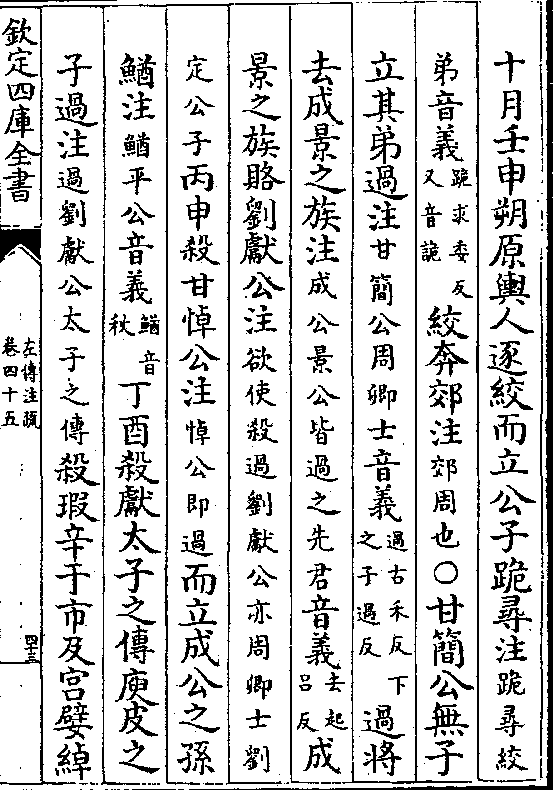 十月壬申朔原輿人逐絞而立公子跪尋注跪尋絞
弟音義跪求委反又音詭絞奔郊注郊周也○甘簡公無子
立其弟過注甘簡公周卿士音義過古禾反下之子過反過將
去成景之族注成公景公皆過之先君音義去起吕反成
景之族賂劉獻公注欲使殺過劉獻公亦周卿士劉
定公子丙申殺甘悼公注悼公即過而立成公之孫
鰌注鰌平公音義鰌音秋丁酉殺獻太子之傅庾皮之
子過注過劉獻公太子之傅殺瑕辛于市及宫嬖綽
欽定四庫全書
左傳注疏
卷四十五
四三